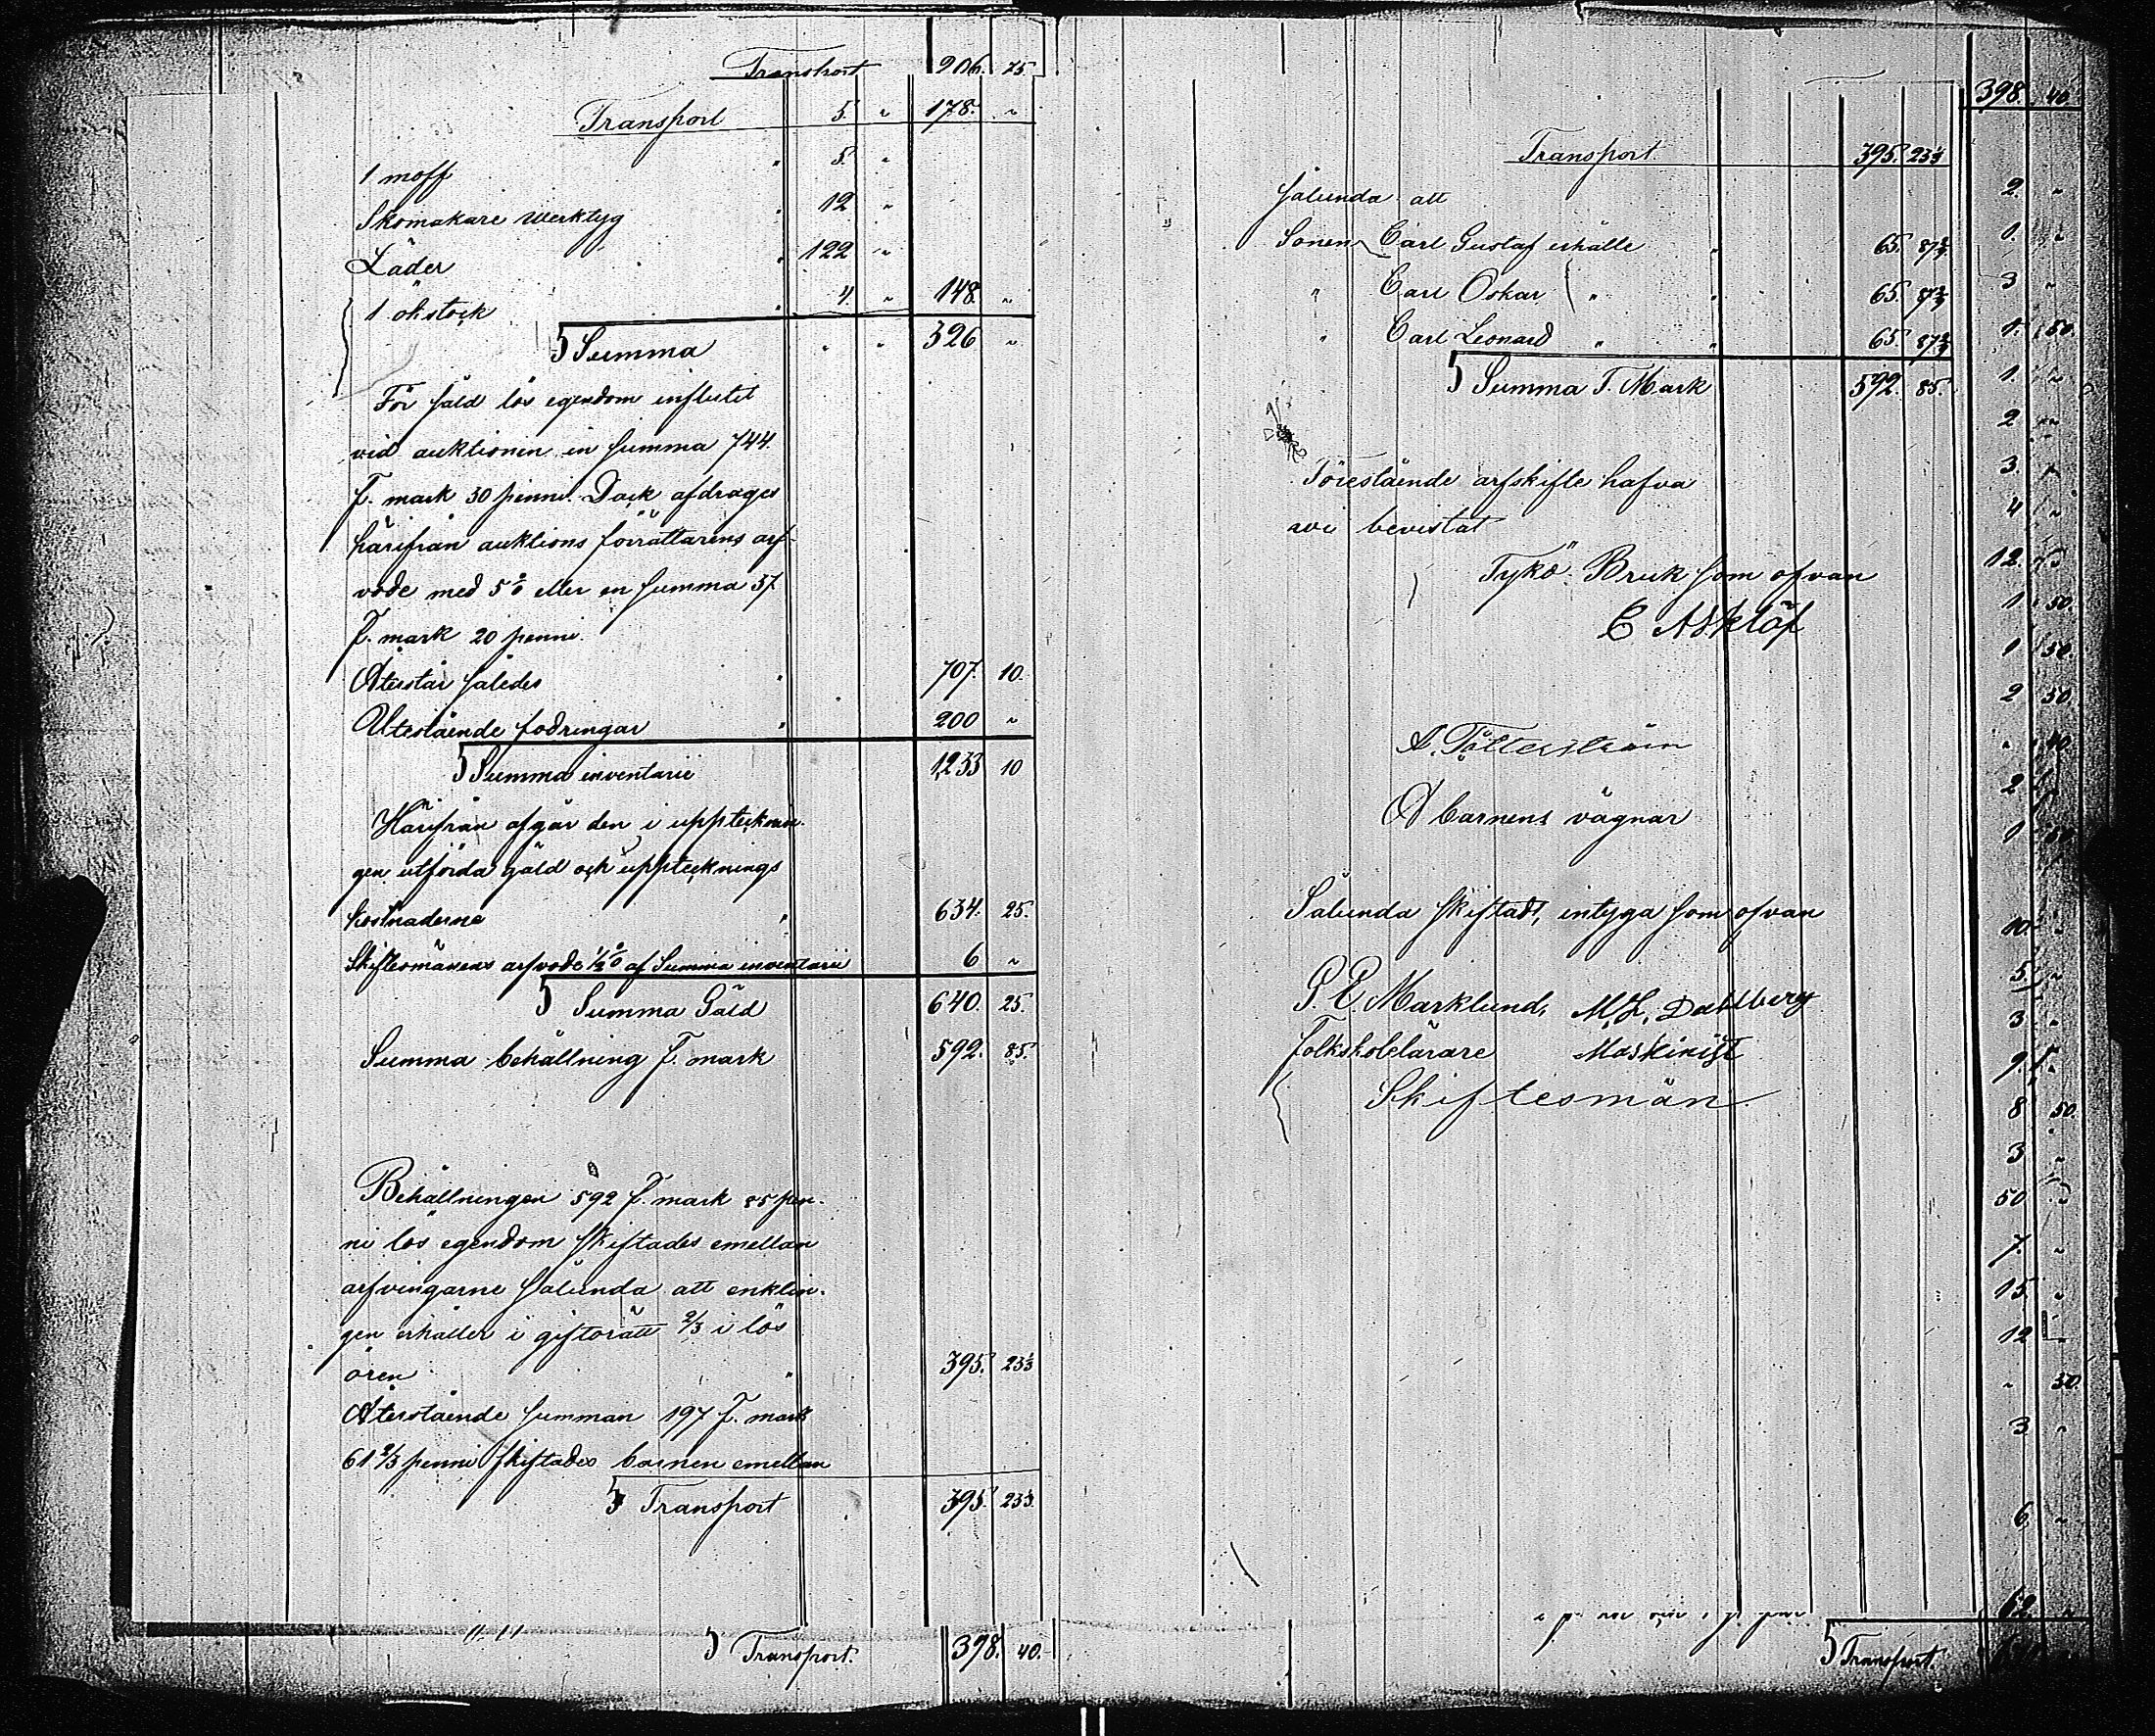 Transport 206. 75
Transport 5. " 178. "
1 moff " 5. "
Skomakare Werktyg " 12 "
Läder " 122 "
1 okstock " 4. " 148. "
S Summa " " 326 "
För såld lös egendom influtit
vid auktionen en summa 744.
F. mark 30 penni. Dock afdrages
härifrån auktions förrättarens arf-
vode med 5 % eller en summa 37
F. mark 20 penni.
Återstår således " 707. 10.
Utestående fodringar " 200 "
S Summa inventarie 1,253 10
Härifrån afgår den i upptecknin-
gen utförda gäld och upptecknings
kostnaderne " 634. 25.
Skiftesmännens arfvode ½ % af Summa inventarii 6 "
S Summa Gäld 640. 25.
Summa behållning F. mark 592. 85.
Behållningen 592 F. mark 85 pen-
ni lös egendom skiftades emellan
arfvingarne sålunda att enklin-
gen erhåller i giftorätt 2/3 i lös
ören " 395. 23⅓
Återstående summan 197 F. mark
61 2/3 penni skiftades barnen emellan
S Transport 395. 23⅓.
S Transport. 398. 40.
Transport. 395. 23⅓
sålunda att
Sonen Carl Gustaf erhålle " 65. 87 2/9.
" Carl Oskar " " 65. 87 2/9
" Carl Leonard " " 65. 87 2/9
S Summa F. Mark 592. 85.
Förestående arfskifte hafva
wi bevistat
Tykö Bruk som ofvan
C Asklöf
A. Fällerström
Å barnens vägnar
Sålunda skiftadt, intyga som ofvan
P. E. Marklund, M. L. Dahlberg
folkskolelärare Maskinist
Skiftesmän
398. 40.
2. "
1. "
3 "
1. 50.
1. "
2 "
3. "
4 "
12. 75
1 50.
1 50.
2 50.
" 40.
2
1 50
10 "
5 "
3 "
9. "
8 50.
3 "
50 "
7. "
15. "
12 "
" 50.
3 "
6. "
62 "
S Transport.